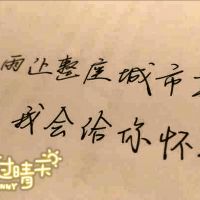 雨让整座城市
我会给你怀
过晴天
NNY